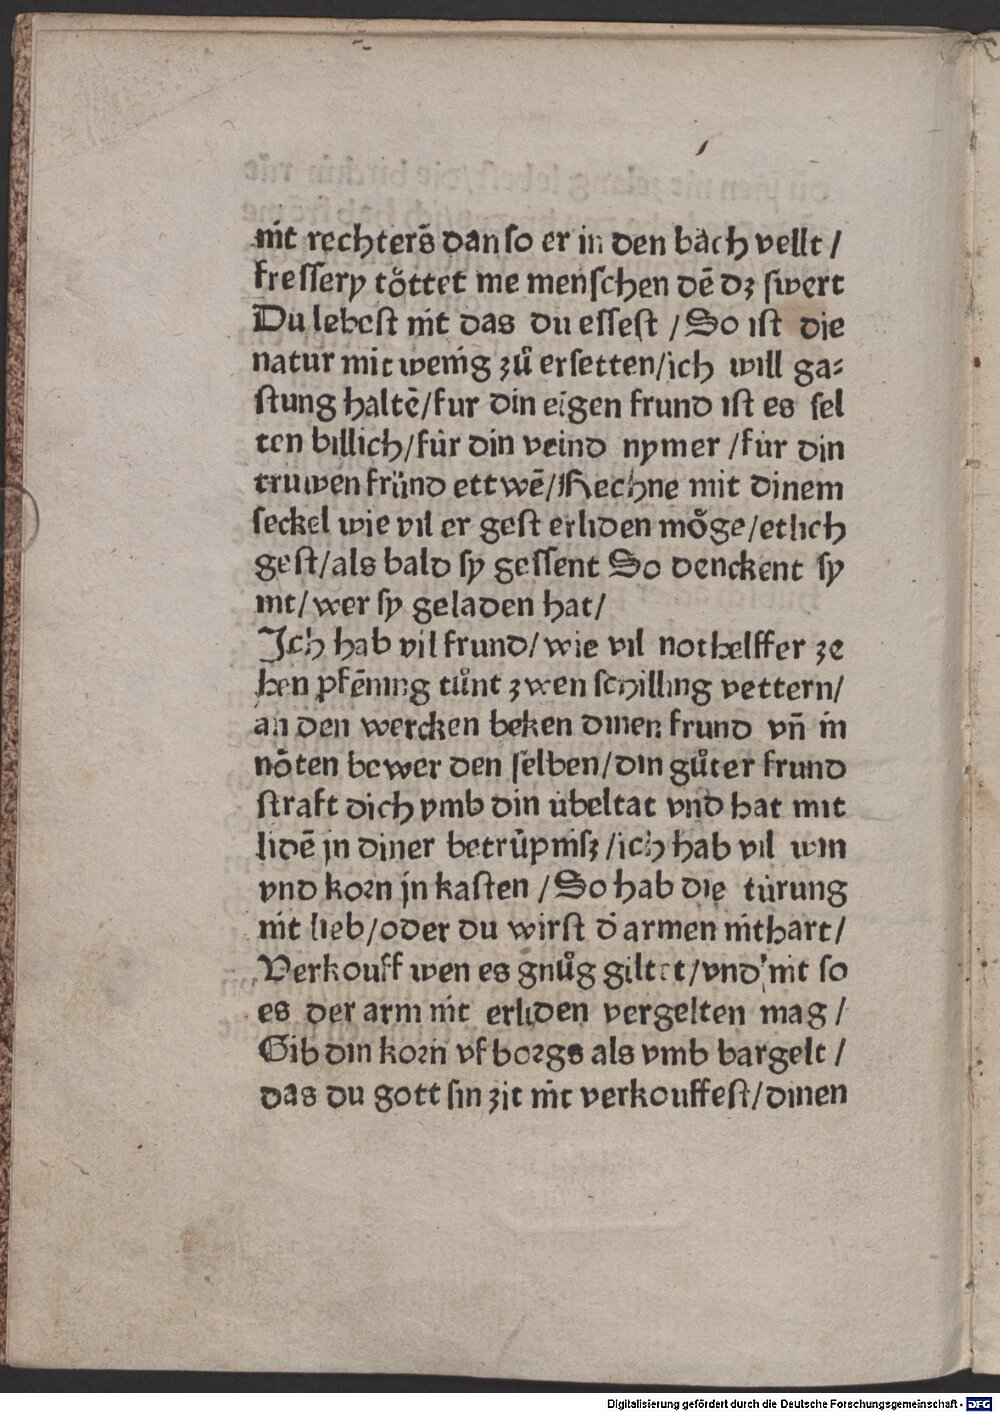 nit rechters̄ dan so er in den bach vellt /
fressery töttet me menschen dē dz swert
Du lebest nit das du essest / So ist die
natur mit wenig zů ersetten/ich will ga⸗
stung haltē/fur din eigen frund ist es sel
ten billich/für din veind nymer /für din
truwen fründ ettwē/Rechne mit dinem
seckel wie vil er gest erliden möge/etlich
gest/als bald sy gessent So denckent sy
nit/wer sy geladen hat/
Ich hab vil frund/wie vil nothelffer ze
hen pfēning tůnt zwen schilling vettern/
an den wercken beken dinen frund vn̄ in
nöten bewer den selben/din gůter frund
straft dich vmb din übeltat vnd hat mit
lidē jn diner betrůpnisz/ich hab vil win
vnd korn jn kasten /So hab die türung
nit lieb/oder du wirst d̄ armen nithart/
Verkouff wen es gnůg giltet/vnd nit so
es der arm nit erliden vergelten mag/
Gib din korn vf borgs als vmb bargelt /
das du gott sin zit nit verkouffest/dinen
Digitalisierung gefördert durch die Deutsche Forschungsgemeinschaft - DFG